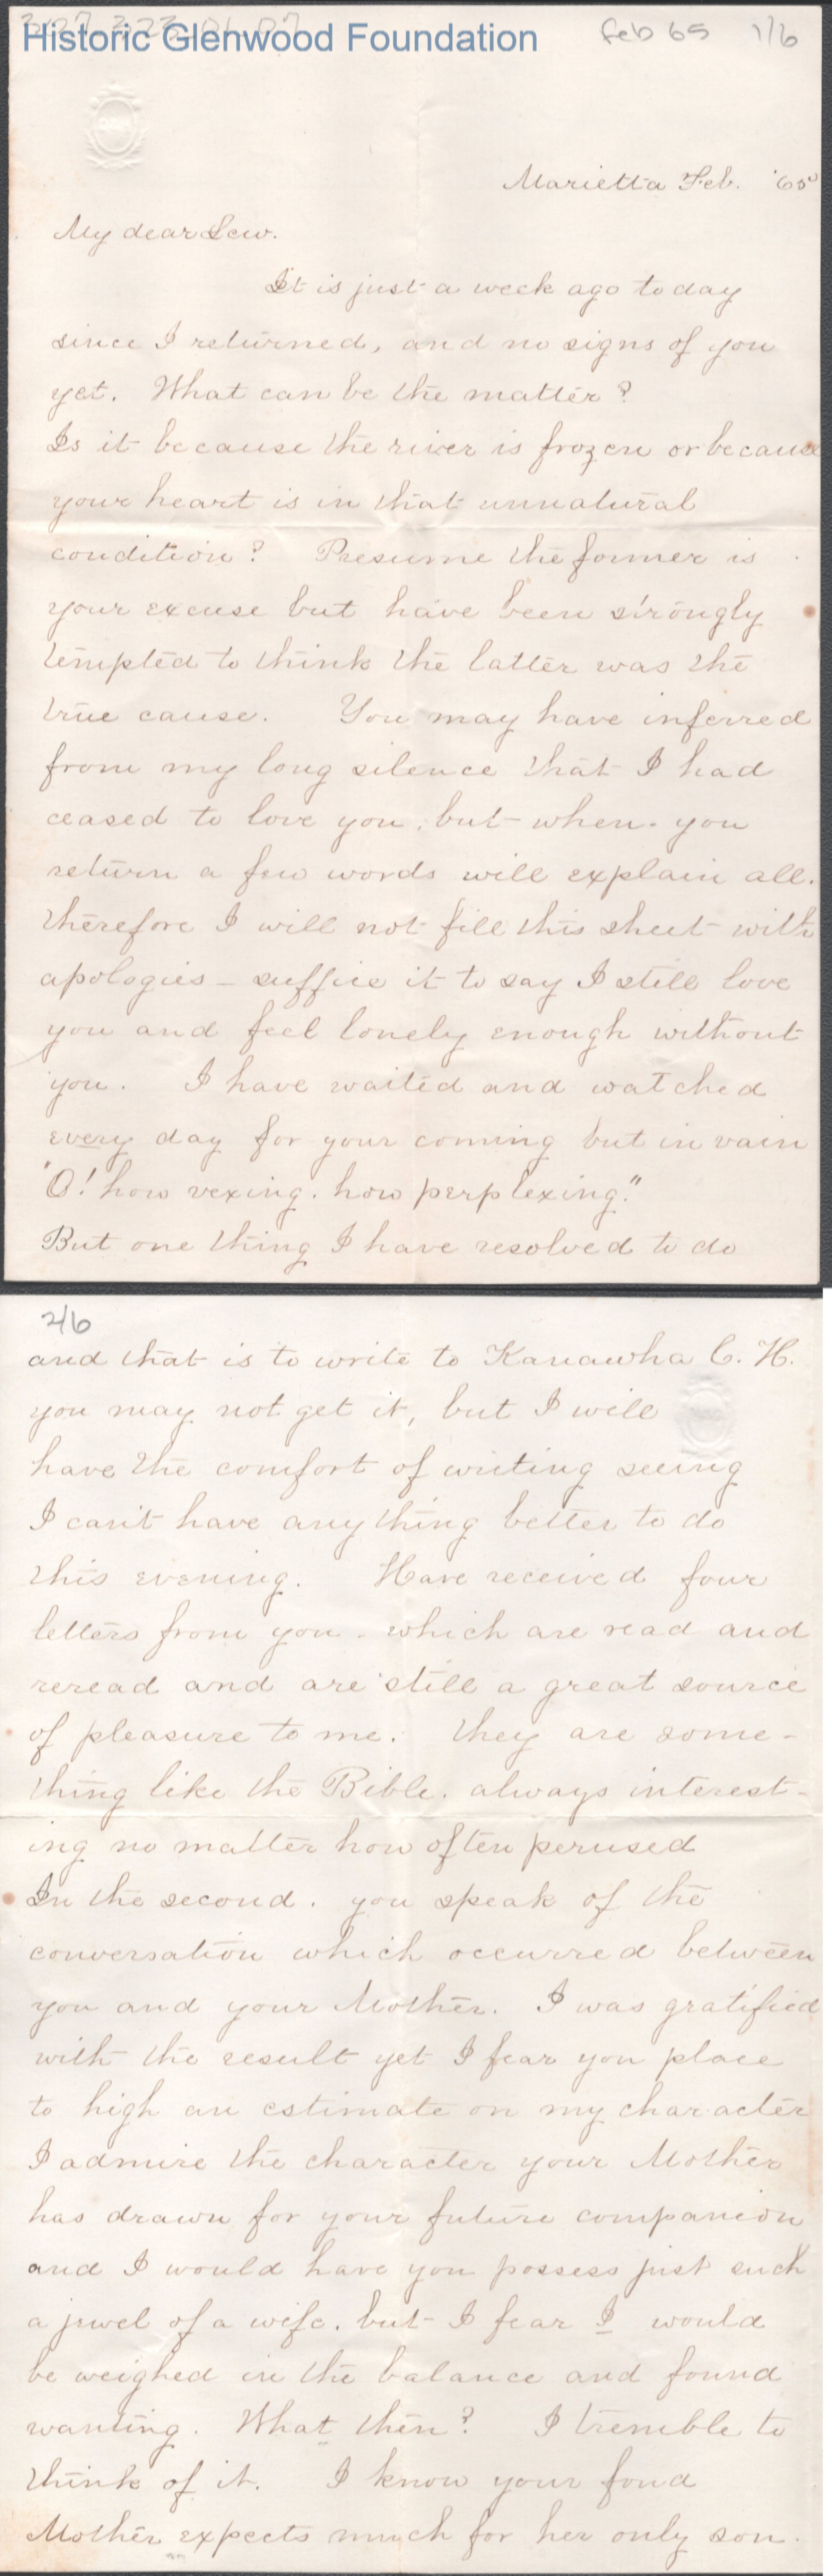 Historic Glenwood Foundation
Feb 65 1/6
Marietta Feb. '65
My dear Lew.
It is just a week ago to day
since I returned, and no signs of you
yet. What can be the matter?
Is it because the river is frozen or because
your heart is in that unnatural
condition? Presume the former is
your excuse but have been strongly
tempted to think the latter was the
true cause. You may have inferred
from my long silence that I had
ceased to love you, but when you
return a few words will explain all.
therefore I will not fill this sheet with
apologies - suffice it to say I still love
you and feel lonely enough without
you. I have waited and watched
every day for your coming but in vain
"O! how vexing. how perplexing."
But one thing I have resolved to do
2/6
and that is to write to Kanawha C. H.
you may not get it, but I will
have the comfort of writing seeing
I can't have any thing better to do
this evening. Have received four
letters from you - which are read and
reread and are still a great source
of pleasure to me. they are some-
thing like the Bible. always interest-
ing no matter how often perused
In the second. you speak of the
conversation which occurred between
you and your Mother. I was gratified
with the result yet I fear you place
to high an estimate on my character
I admire the character your Mother
has drawn for your future companion
and I would have you possess just such
a jewel of a wife. but I fear I would
be weighed in the balance and found
wanting. What then? I tremble to
think of it. I know your fond
Mother expects much for her only son.